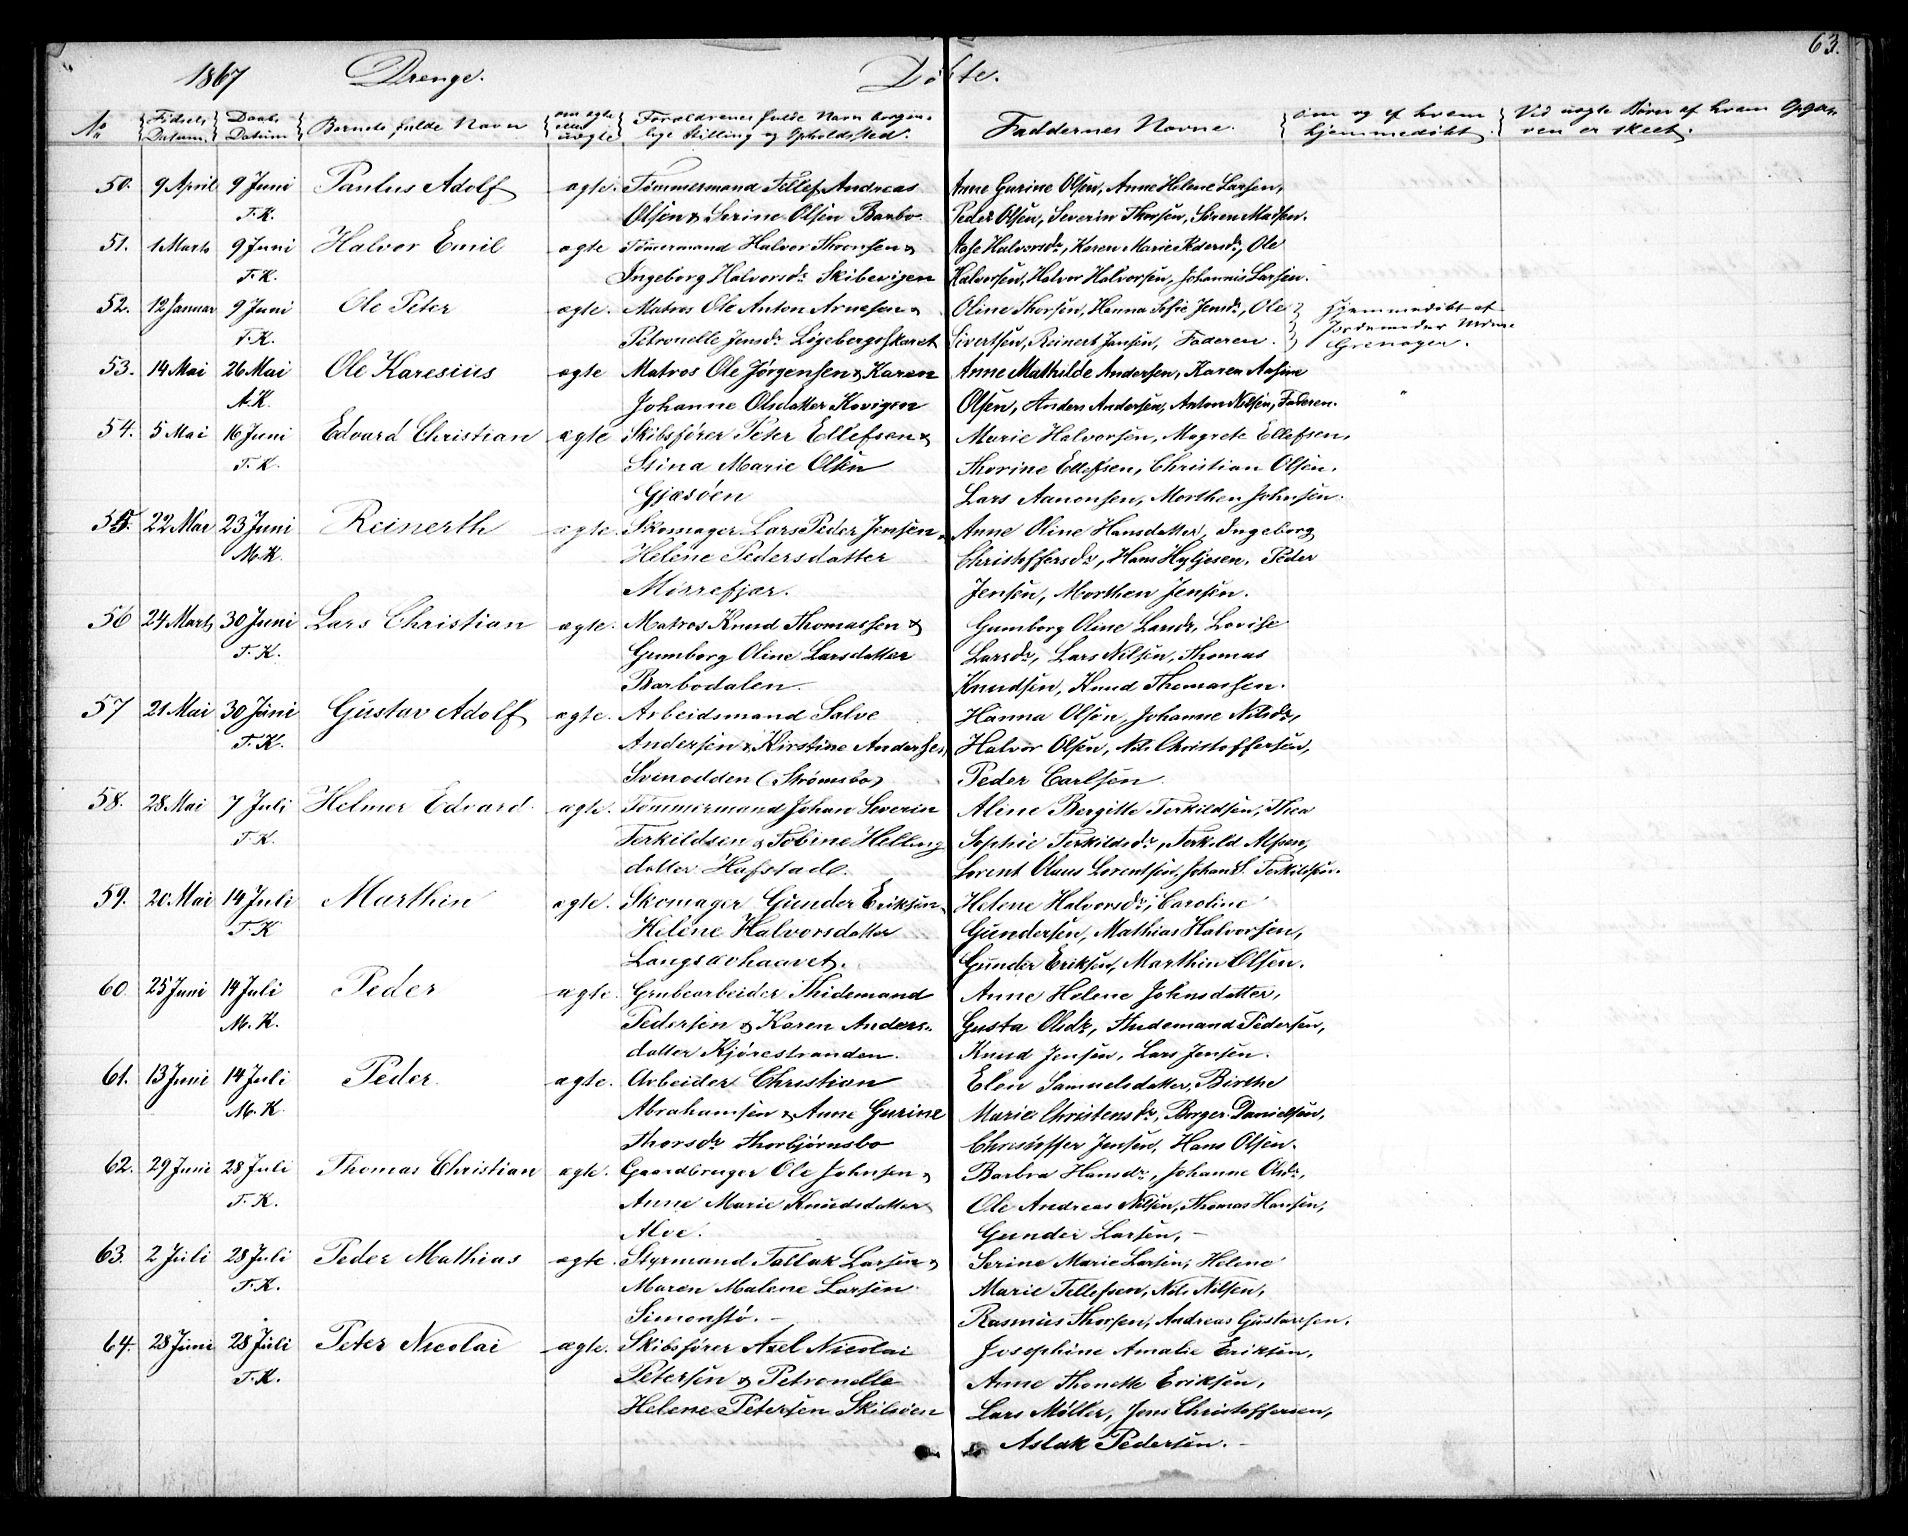 63.
1867 Drenge. Døbte.
No Fødsels Datum. Daabs Datum Barnets fulde Navn om ægte eller uægte Forældrenes fulde Navn borger- lige Stilling og Opholdsted. Faddernes Navne. Om og af hvem hjemmedøbt. Ved uægte Børn af hvem Opgav- ven er skeet.
50. 9 April 9 Juni Paulus Adolf ægte. Tømmermand Tellef Andreas Anne Gurine Olsen, Anne Helene Larsen,
T.K. Olsen & Serine Olsen Barbo. Peder Olsen, Severin Thorsen, Søren Madsen.
51. 1 Marts 9 Juni Halvor Emil ægte Tømmermand Halvor Thronsen & Aase Halvorsdr, Karen Marie Pedersdr, Ole
T.K. Ingeborg Halvorsdr Skibevigen Halvorsen, Halvor Halvorsen, Johannis Larsen.
52. 12 Januar 9 Juni Ole Peter ægte. Matros Ole Anton Arnesen & Oline Thorsen, Hanna Sofie Jensdr, Ole Hjemmedøbt af
T.K. Petronelle Jensdr Løgebergsskaret Sivertsen, Reinert Jensen, Faderen. Jordemoder
53. 14 Mai 26 Mai Ole Karesius ægte Matros Ole Jørgensen & Karen Anne Mathilde Andersen, Karen Aasine
A.K. Johanne Olsdatter Kovigen Olsen, Anders Andersen, Anton Nilsen, Faderen. "
54. 5 Mai 16 Juni Edvard Christian ægte Skibsfører Peter Ellefsen & Marie Halvorsen, Magrete Ellefsen,
T.K. Stina Marie Olsen Thorine Ellefsen, Christian Olsen.
Gjæsøen Lars Aanonsen, Morthen Johnsen.
55. 22 Mar 23 Juni Reinerth ægte. Skomager Lars Peder Jensen & Anne Oline Hansdatter, Ingeborg
M.K. Helene Pedersdatter Christoffersdr, Hans Hyljesen, Peder
Mørrefjær. Jensen, Morthen Jensen.
56 24 Marts 30 Juni Lars Christian ægte. Matros Knud Thomassen & Gumborg Oline Larsdr, Lovise
T.K. Gumborg Oline Larsdatter Larsdr, Lars Nilsen, Thomas
Barbodalen. Knudsen, Knud Thomassen.
57 21 Mai 30 Juni Gustav Adolf ægte. Arbeidsmand Salve Hanna Olsen, Johanne Nilsdr,
T.K. Andersen & Kirstine Andersen, Halvor Olsen, Nils Christoffersen,
Svinodden (Strømsbo) Peder Carlsen
58. 28 Mai 7 Juli Helmer Edvard. ægte. Tømmermand Johan Severin Aline Bergitte Terkildsen, Thea
T.K. Terkildsen & Tobine Helling Sophie Terkildsdr, Terkild Alfsen,
datter Hafstad. Lorent Olaus Lorentsen, Johan S. Terkildsen.
59. 20 Mai 14 Juli Marthin ægte. Skomager Gunder Eriksen & Helene Halvorsdr, Caroline
T.K Helene Halvorsdatter Gundersen, Mathias Halvorsen,
Langsævhaavet. Gunder Eriksen, Marthin Olsen.
60. 25 Juni 14 Juli Peder ægte. Grubearbeider Thidemand Anne Helene Johnsdatter,
M.K. Pedersen & Karen Anders- Gusta Olsdr, Thidemand Pedersen,
datter Kjørestranden. Knud Jensen, Lars Jensen.
61. 13 Juni 14 Juli Peder. ægte. Arbeider Christian Elen Samuelsdatter, Birthe
M.K. Abrahamsen & Anne Gurine Marie Christensdr, Børger Danielsen,
Thorsdr Thorbjørnsbo Christoffer Jensen, Hans Olsen.
62. 29 Juni 28 Juli Thomas Christian ægte. Gaardbruger Ole Johnsen & Barbra Hansdr, Johanne Olsdr,
T.K. Anne Marie Knudsdatter Ole Andreas Nilsen, Thomas Hansen,
Alve. Gunder Larsen, –
63. 2 Juli 28 Juli Peder Mathias ægte Styrmand Tallak Larsen & Serine Marie Larsen, Helene
T.K. Maren Malene Larsen Marie Tellefsen, Nils Nilsen,
Simonstø. – Rasmus Thorsen, Andreas Gustavsen.
64. 28 Juni 28 Juli Peter Nicolai ægte. Skibsfører Axel Nicolai Josephine Amalie Eriksen,
T.K. Petersen & Petronelle Anne Thonette Eriksen,
Helene Petersen Skilsøen Lars Møller, Jens Christoffersen,
Aslak Pedersen. –